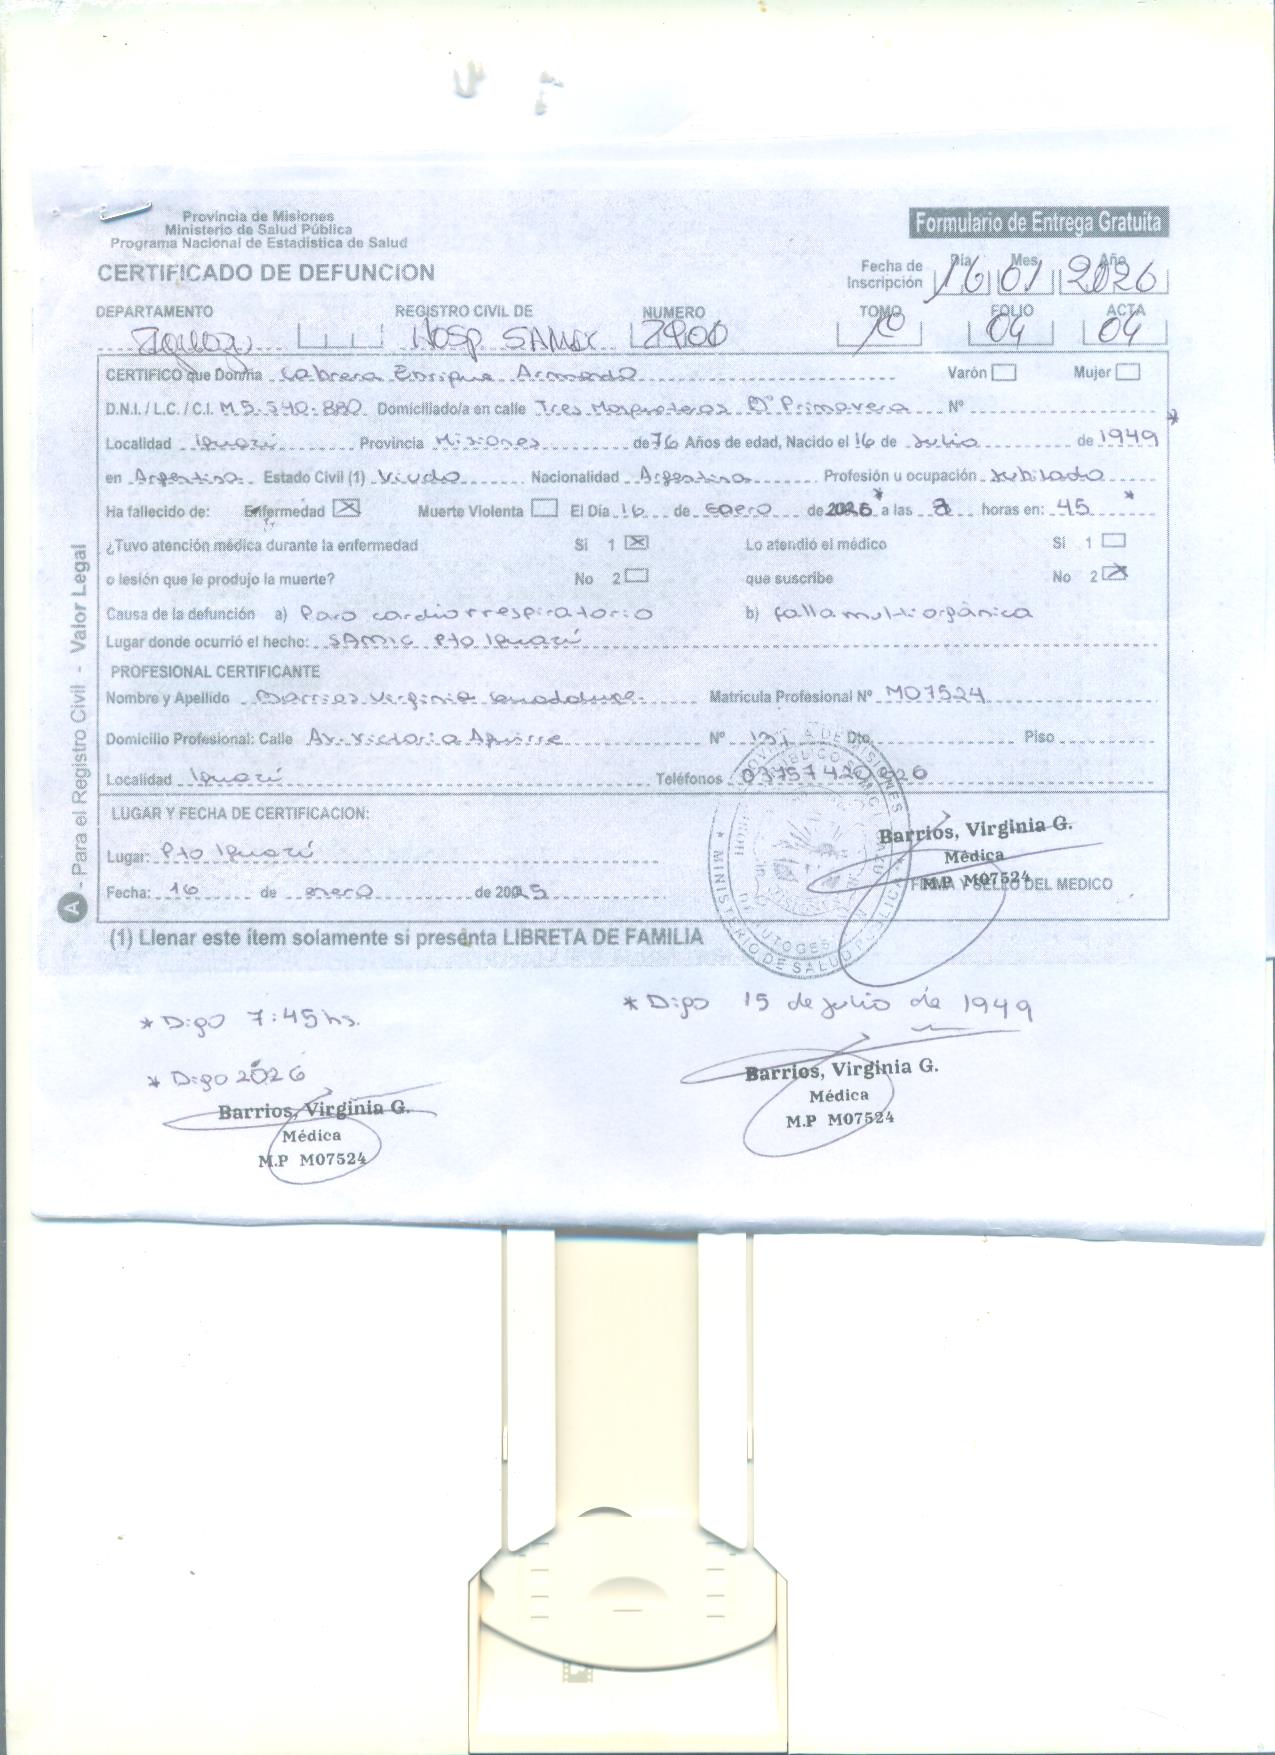 Provincia de Misiones
Ministerio de Salud Pública
Programa Nacional de Estadística de Salud
Formulario de Entrega Gratuita
CERTIFICADO DE DEFUNCION
Fecha de Inscripción Día Mes Año
16 01 2026
DEPARTAMENTO REGISTRO CIVIL DE NUMERO TOMO FOLIO ACTA
Iguazú Hosp SAMIC 2900 04 04
CERTIFICO que Don/ña Cabrera Enrique Armando Varón Mujer
D.N.I. / L.C. / C.I. M 5.540.880 Domiciliado/a en calle Tres Mosqueteros Bº Primavera Nº *
Localidad Iguazú Provincia Misiones de 76 Años de edad, Nacido el 16 de Julio de 1949
en Argentina Estado Civil (1) Viudo Nacionalidad Argentina Profesión u ocupación Jubilado
Ha fallecido de: Enfermedad X Muerte Violenta El Día 16 de enero de 2026 * a las horas en: 45 *
¿Tuvo atención médica durante la enfermedad Si 1 X Lo atendió el médico Si 1
o lesión que le produjo la muerte? No 2 que suscribe No 2 X
Causa de la defunción a) Paro cardiorrespiratorio b) falla multiorgánica
Lugar donde ocurrió el hecho: SAMIC Pto Iguazú
PROFESIONAL CERTIFICANTE
Nombre y Apellido Barrios Virginia Guadalupe Matricula Profesional Nº M07524
Domicilio Profesional: Calle Av. Victoria Aguirre Nº 131 Dto. Piso
Localidad Iguazú Teléfonos 03757420
LUGAR Y FECHA DE CERTIFICACION:
Lugar: Pto Iguazú
Fecha: 16 de enero de 2025
Barrios, Virginia G.
Médica
M.P M07524
FIRMA Y SELLO DEL MEDICO
MINISTERIO DE SALUD PUBLICA
A - Para el Registro Civil - Valor Legal
(1) Llenar este ítem solamente si presenta LIBRETA DE FAMILIA
* Digo 7:45 hs.
* Digo 2026
Barrios, Virginia G.
Médica
M.P M07524
* Digo 15 de julio de 1949
Barrios, Virginia G.
Médica
M.P M07524